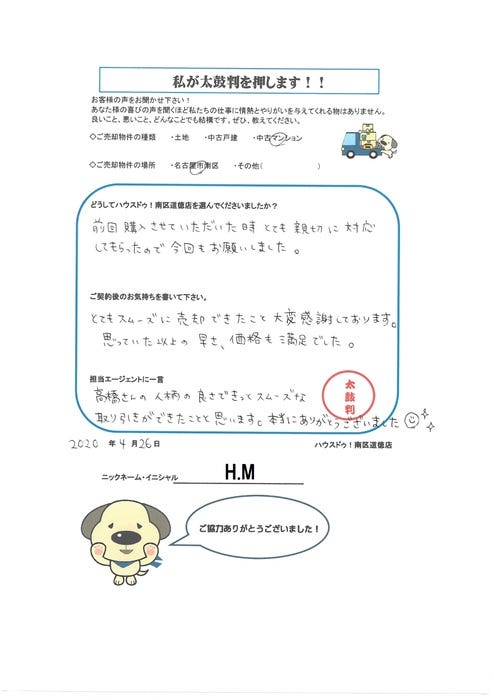 私が太鼓判を押します！！
お客様の声をお聞かせ下さい！
あなた様の喜びの声を聞くほど私たちの仕事に情熱とやりがいを与えてくれる物はありません。
良いこと、悪いこと、どんなことでも結構です。ぜひ、教えてください。
◇ご売却物件の種類　・土地　・中古戸建　・中古マンション
◇ご売却物件の場所　・名古屋市南区　・その他(　　　　)
どうしてハウスドゥ！南区道徳店を選んでくださいましたか？
前回購入させていただいた時とても親切に対応
してもらったので今回もお願いしました。
ご契約後のお気持ちを書いて下さい。
とてもスムーズに売却できたこと大変感謝しております。
思っていた以上の早さ、価格も満足でした。
担当エージェントに一言
高橋さんの人柄の良さできっとスムーズな
取り引きができたことと思います。本当にありがとうございました
太鼓判
2020年4月26日
ハウスドゥ！南区道徳店
ニックネーム・イニシャル　H.M
ご協力ありがとうございました！